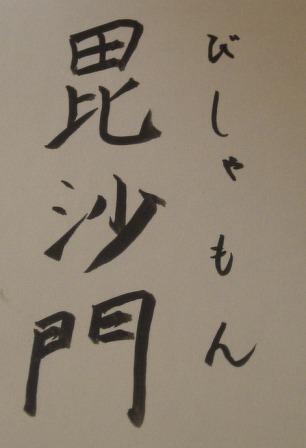 びしゃもん
毘沙門